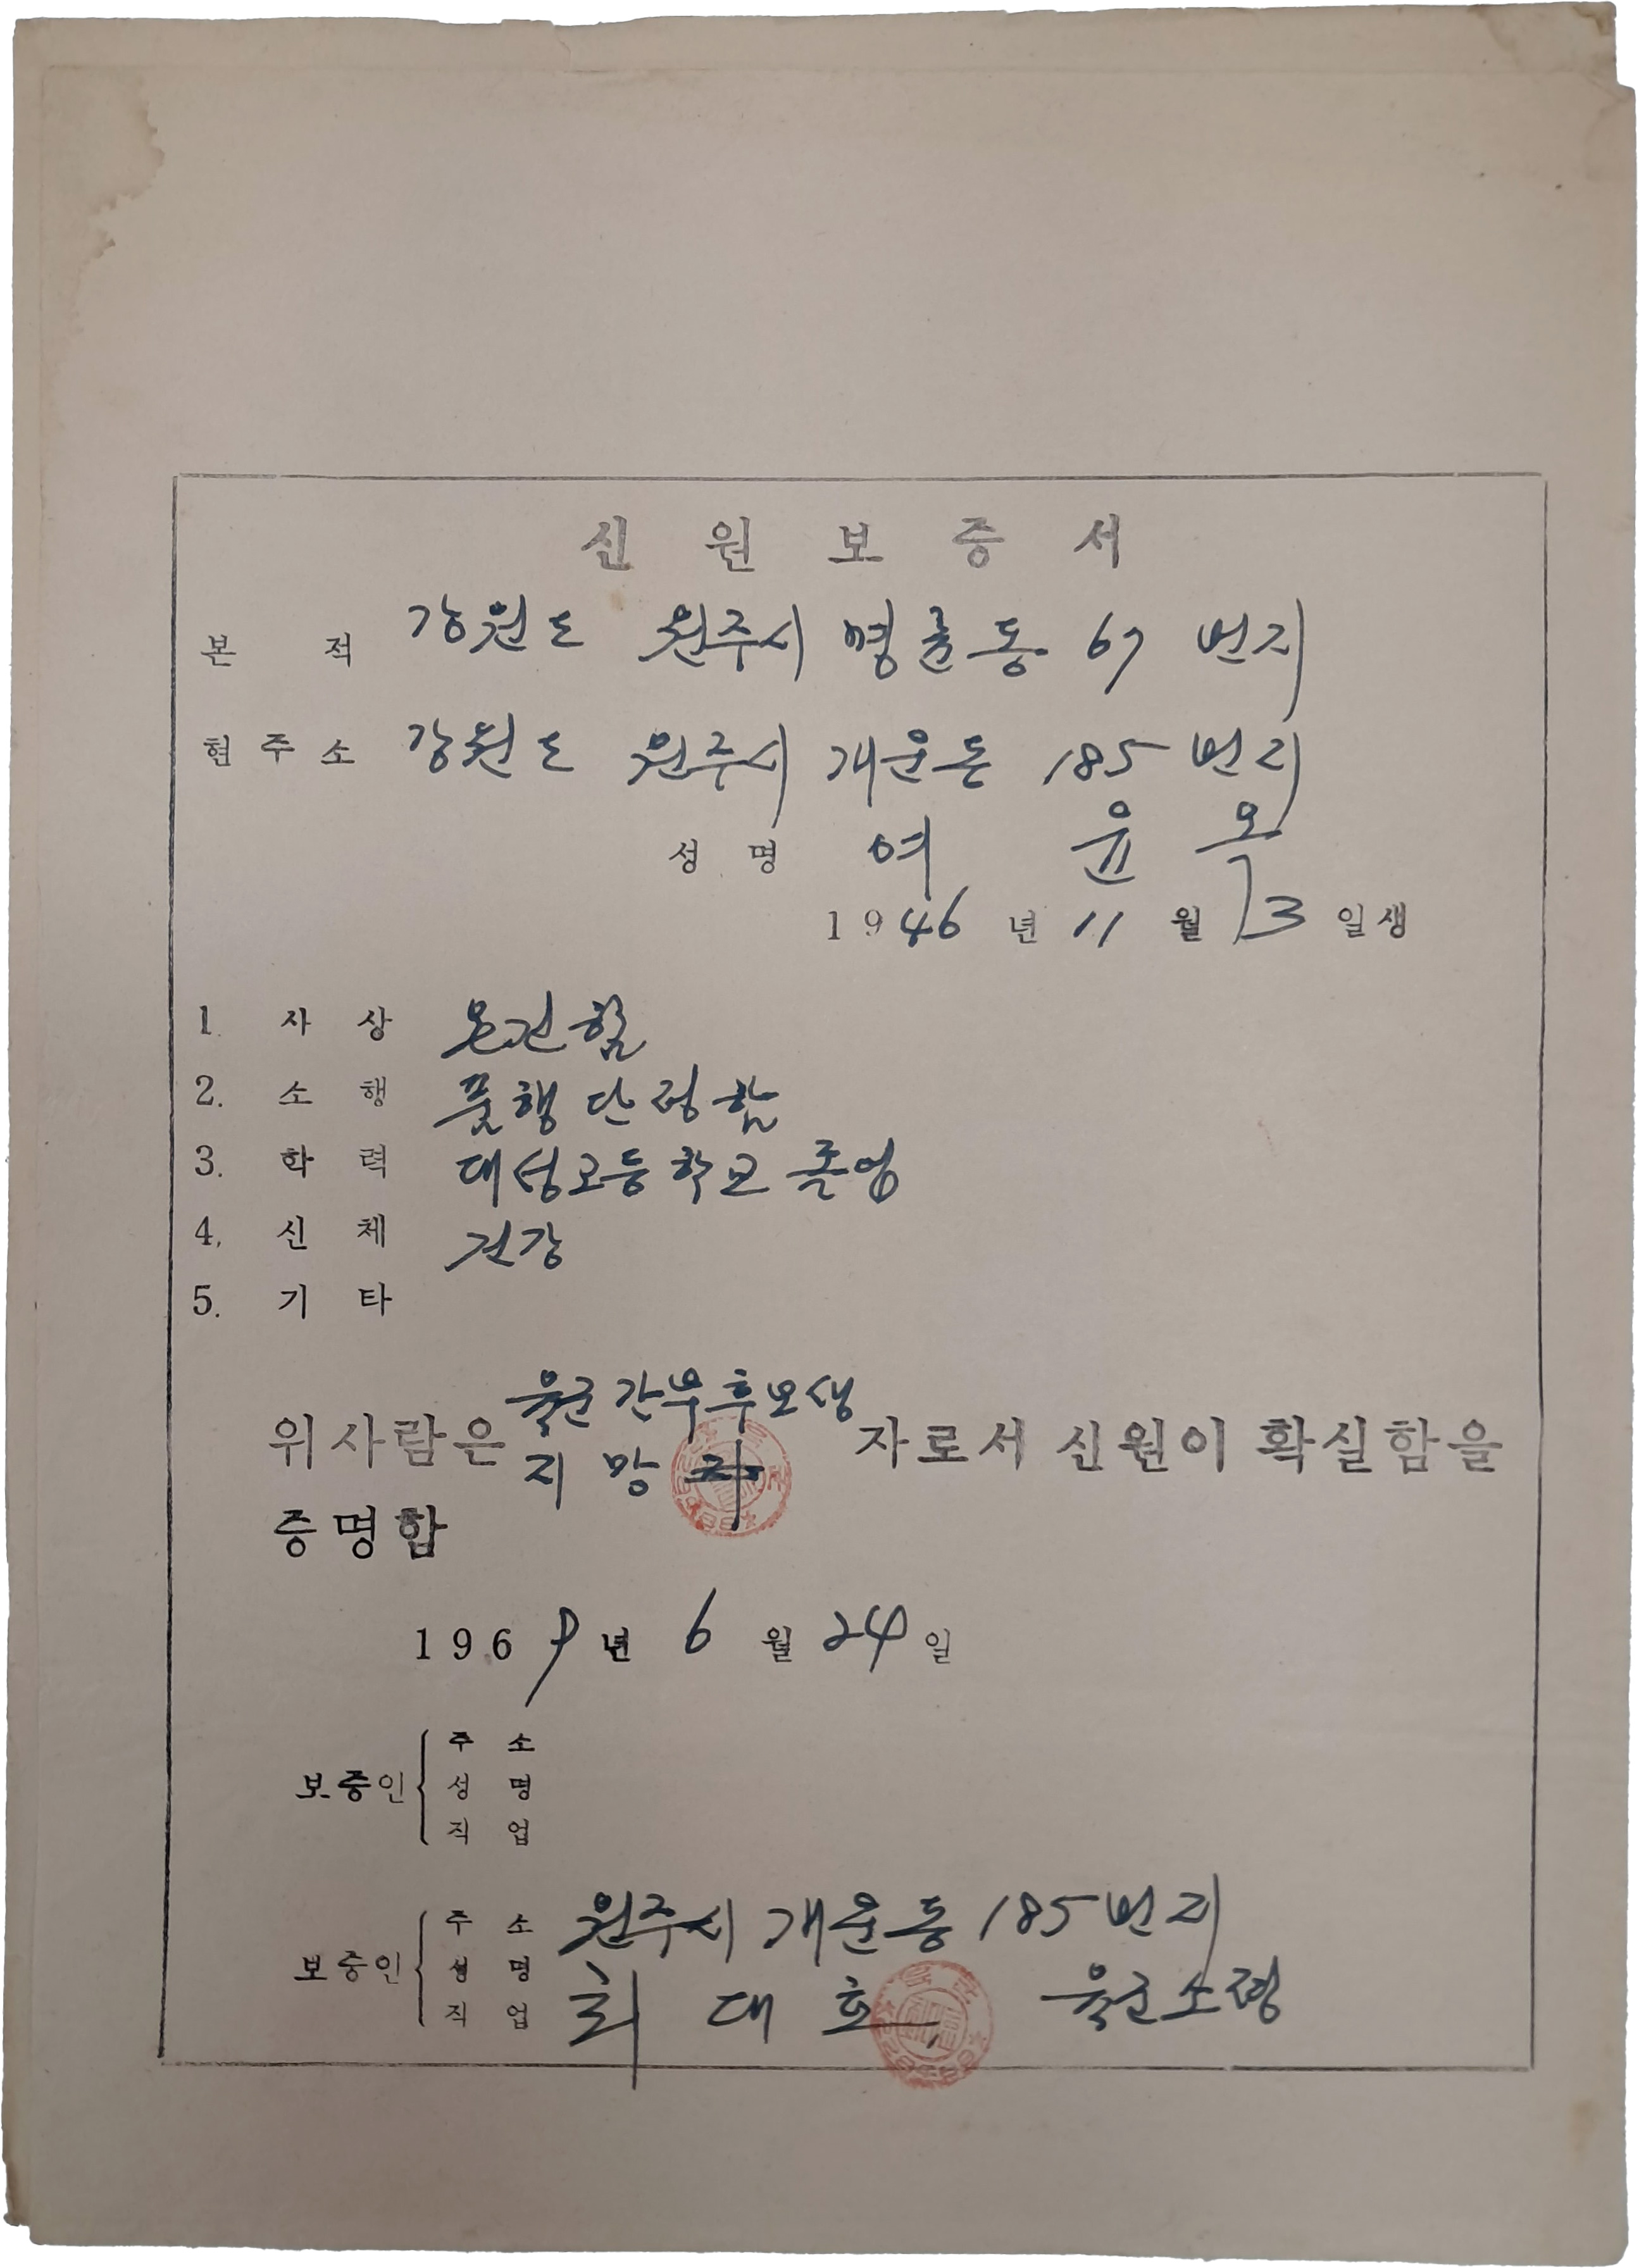 신원보증서
본적 강원도 원주시 명륜동 67 번지
현주소 강원도 원주시 개운동 185 번지
성명 여 윤옥
1946년 11월 13일생
1. 사상 온건함
2. 소행 품행단정함
3. 학력 대성고등학교 졸업
4. 신체 건강
5. 기타
위사람은 육군간부후보생 지망 자로서 신원이 확실함을
증명합
1969년 6월 24일
보증인 주소
성명
직업
보증인 주소 원주시 개운동 185번지
성명 최 대 호 육군소령
직업